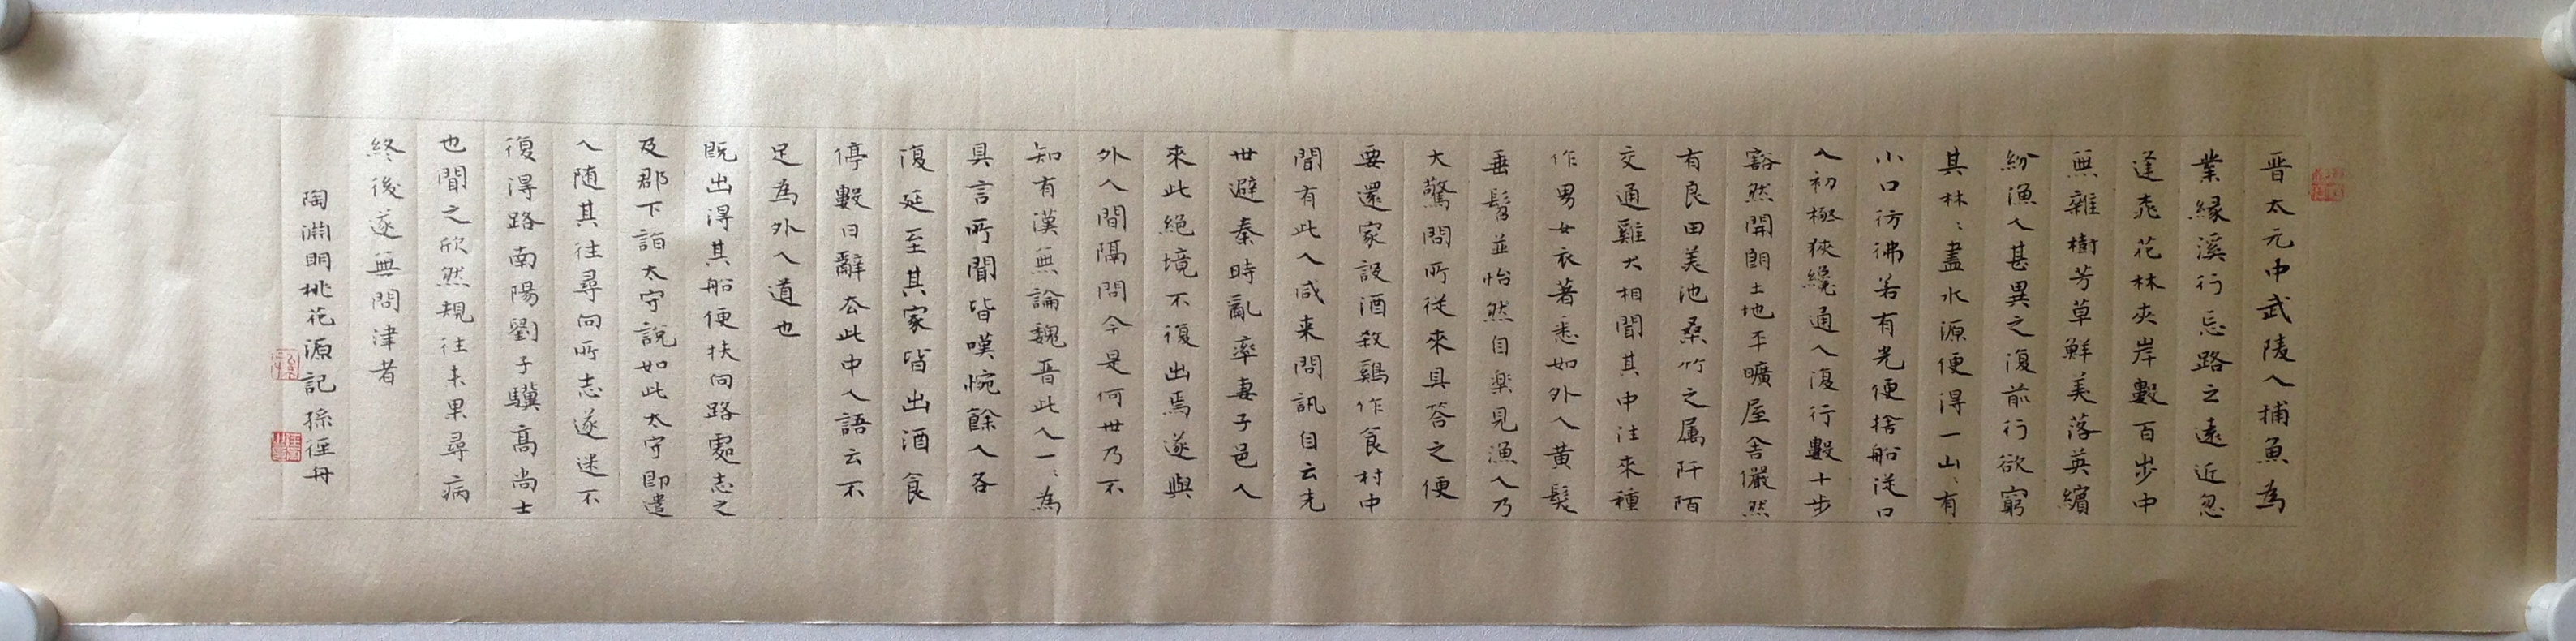 晋太元中武陵人捕魚為
業緣溪行忘路之遠近忽
逢桃花林夾岸數百步中
無雜樹芳草鮮美落英繽
紛漁人甚異之復前行欲窮
其林〻盡水源便得一山〻有
小口彷彿若有光便捨船従口
入初極狹纔通人復行數十步
豁然開朗土地平曠屋舍儼然
有良田美池桑竹之属阡陌
交通雞犬相聞其中往來種
作男女衣著悉如外人黄髮
垂髫並怡然自楽見漁人乃
大驚問所従來具答之便
要還家設酒殺鷄作食村中
聞有此人咸来問訊自云先
世避秦時亂率妻子邑人
來此絕境不復出焉遂與
外人間隔問今是何世乃不
知有漢無論魏晋此人一〻為
具言所聞皆嘆惋餘人各
復延至其家皆出酒食
停數日辭去此中人語云不
足為外人道也
既出得其船便扶向路處志之
及郡下詣太守說如此太守即遣
人随其往尋向所志遂迷不
復得路南陽劉子驥高尚士
也聞之欣然規往未果尋病
終後遂無問津者
陶淵明桃花源記 孫徑舟